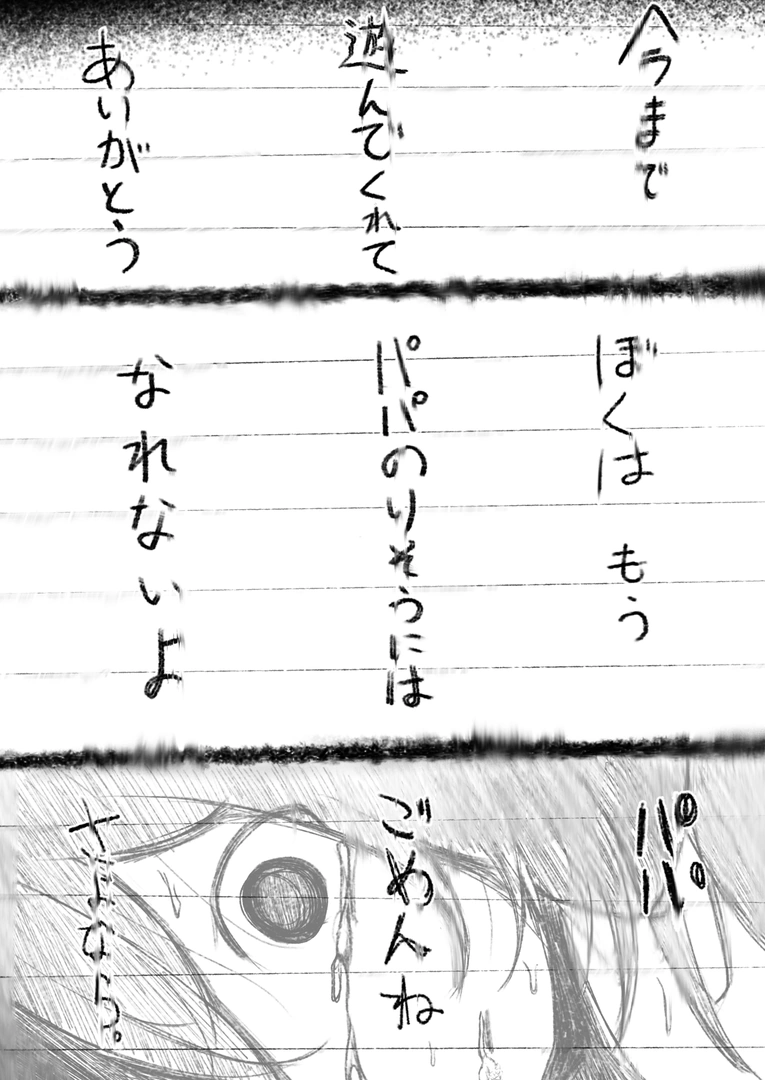 今まで
遊んでくれて
ありがとう
ぼくは もう
パパのりそうには
なれないよ
パパ
ごめんね
さよなら。